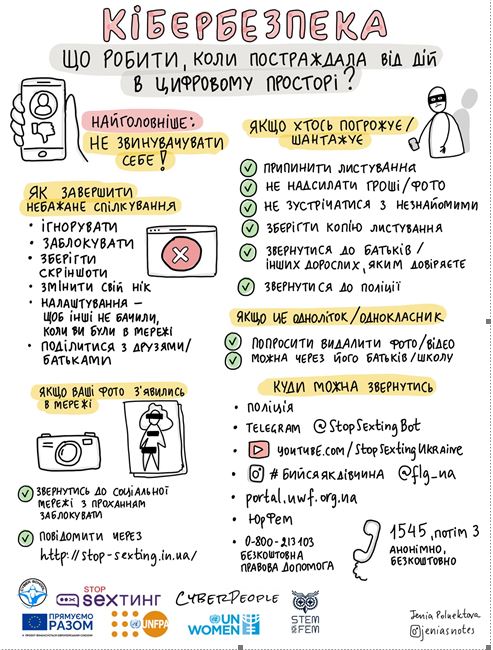 КІБЕРБЕЗПЕКА
ЩО РОБИТИ, КОЛИ ПОСТРАЖДАЛА ВІД ДІЙ
В ЦИФРОВОМУ ПРОСТОРІ?
НАЙГОЛОВНІШЕ:
НЕ ЗВИНУВАЧУВАТИ
СЕБЕ!
ЯК ЗАВЕРШИТИ
НЕБАЖАНЕ СПІЛКУВАННЯ
• ІГНОРУВАТИ
• ЗАБЛОКУВАТИ
• ЗБЕРЕГТИ
СКРІНШОТИ
• ЗМІНИТИ СВІЙ НІК
• НАЛАШТУВАННЯ –
ЩОБ ІНШІ НЕ БАЧИЛИ,
КОЛИ ВИ БУЛИ В МЕРЕЖІ
• ПОДІЛИТИСЯ З ДРУЗЯМИ/
БАТЬКАМИ
ЯКЩО ВАШІ ФОТО З'ЯВИЛИСЬ
В МЕРЕЖІ
ЗВЕРНУТИСЬ ДО СОЦІАЛЬНОЇ
МЕРЕЖІ З ПРОХАННЯМ
ЗАБЛОКУВАТИ
ПОВІДОМИТИ ЧЕРЕЗ
http://stop-sexting.in.ua/
ЯКЩО ХТОСЬ ПОГРОЖУЄ/
ШАНТАЖУЄ
ПРИПИНИТИ ЛИСТУВАННЯ
НЕ НАДСИЛАТИ ГРОШІ/ФОТО
НЕ ЗУСТРІЧАТИСЯ З НЕЗНАЙОМИМИ
ЗБЕРІГТИ КОПІЮ ЛИСТУВАННЯ
ЗВЕРНУТИСЯ ДО БАТЬКІВ/
ІНШИХ ДОРОСЛИХ, ЯКИМ ДОВІРЯЄТЕ
ЗВЕРНУТИСЯ ДО ПОЛІЦІЇ
ЯКЩО ЦЕ ОДНОЛІТОК/ОДНОКЛАСНИК
ПОПРОСИТИ ВИДАЛИТИ ФОТО/ВІДЕО
МОЖНА ЧЕРЕЗ ЙОГО БАТЬКІВ/ШКОЛУ
КУДИ МОЖНА ЗВЕРНУТИСЬ
• ПОЛІЦІЯ
• TELEGRAM @StopSextingBot
• YOUTUBE.COM/StopSextingUkraine
• #БИЙСЯЯКДІВЧИНА @flg_ua
• portal.uwf.org.ua
• ЮрФем
• 0-800-213103
БЕЗКОШТОВНА
ПРАВОВА ДОПОМОГА
1545, потім 3
АНОНІМНО,
БЕЗКОШТОВНО
STOP
SEXТИНГ
CYBERPEOPLE
ПРЯМУЄМО
РАЗОМ
UNFPA
UN
WOMEN
STEM
is
FEM
Jenia Poluektova
@jeniasnotes